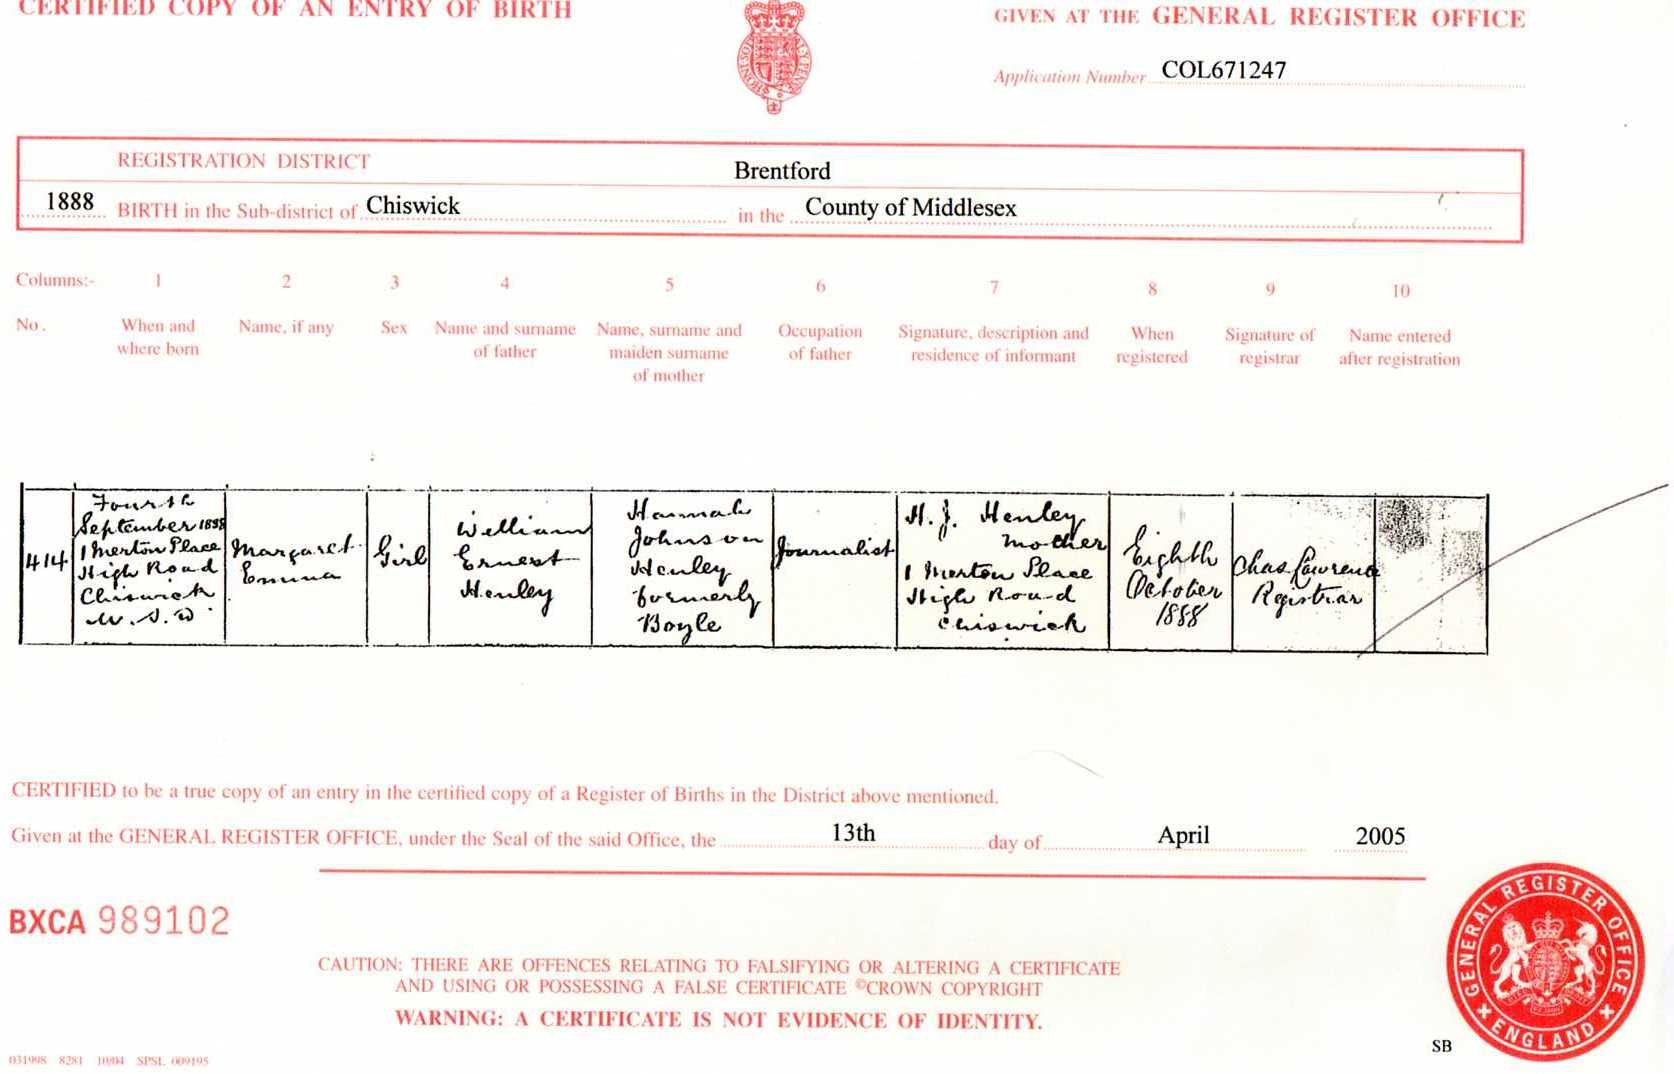 CERTIFIED COPY OF AN ENTRY OF BIRTH
GIVEN AT THE GENERAL REGISTER OFFICE
Application Number COL671247
REGISTRATION DISTRICT Brentford
1888 BIRTH in the Sub-district of Chiswick in the County of Middlesex
Columns:- 1 2 3 4 5 6 7 8 9 10
No. When and where born
Name, if any
Sex
Name and surname of father
Name, surname and maiden surname of mother
Occupation of father
Signature, description and residence of informant
When registered
Signature of registrar
Name entered after registration
414
Fourth
September 1888
1 Merton Place
High Road
Chiswick
U.S.D.
Margaret
Emma
Girl
William
Ernest
Henley
Hannah
Johnson
Henley
formerly
Boyle
Journalist
H. J. Henley
Mother
1 Merton Place
High Road
Chiswick
Eighth
October
1888
Chas Lawrence
Registrar
CERTIFIED to be a true copy of an entry in the certified copy of a Register of Births in the District above mentioned.
Given at the GENERAL REGISTER OFFICE, under the Seal of the said Office, the 13th day of April 2005
BXCA 989102
CAUTION: THERE ARE OFFENCES RELATING TO FALSIFYING OR ALTERING A CERTIFICATE
AND USING OR POSSESSING A FALSE CERTIFICATE ©CROWN COPYRIGHT
WARNING: A CERTIFICATE IS NOT EVIDENCE OF IDENTITY.
GENERAL REGISTER OFFICE
ENGLAND
SB
031998 8281 10/04 SPSL 009195